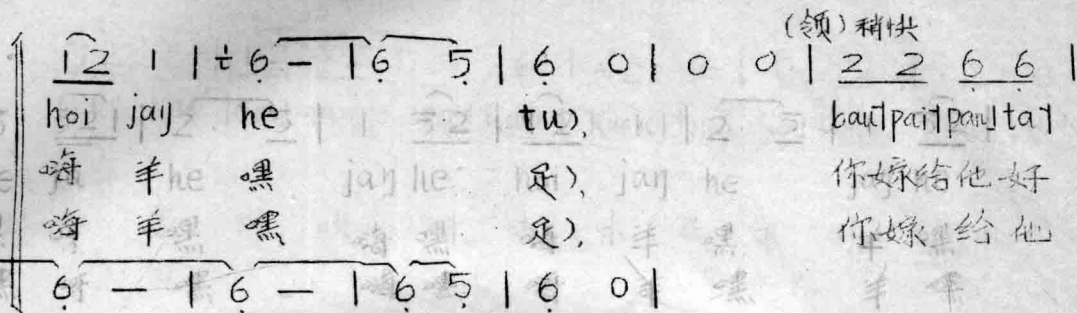 (领) 稍快
1 2 1 | ÷ 6 – | 6 5 | 6 0 | 0 0 | 2 2 6 6 |
hoi jaŋ he tu), pai˥ ta˥
嗨 羊 嘿 足), 你嫁给他好
嗨 羊 嘿 足), 你嫁给他
6 – | 6 – | 6 5 | 6 0 |